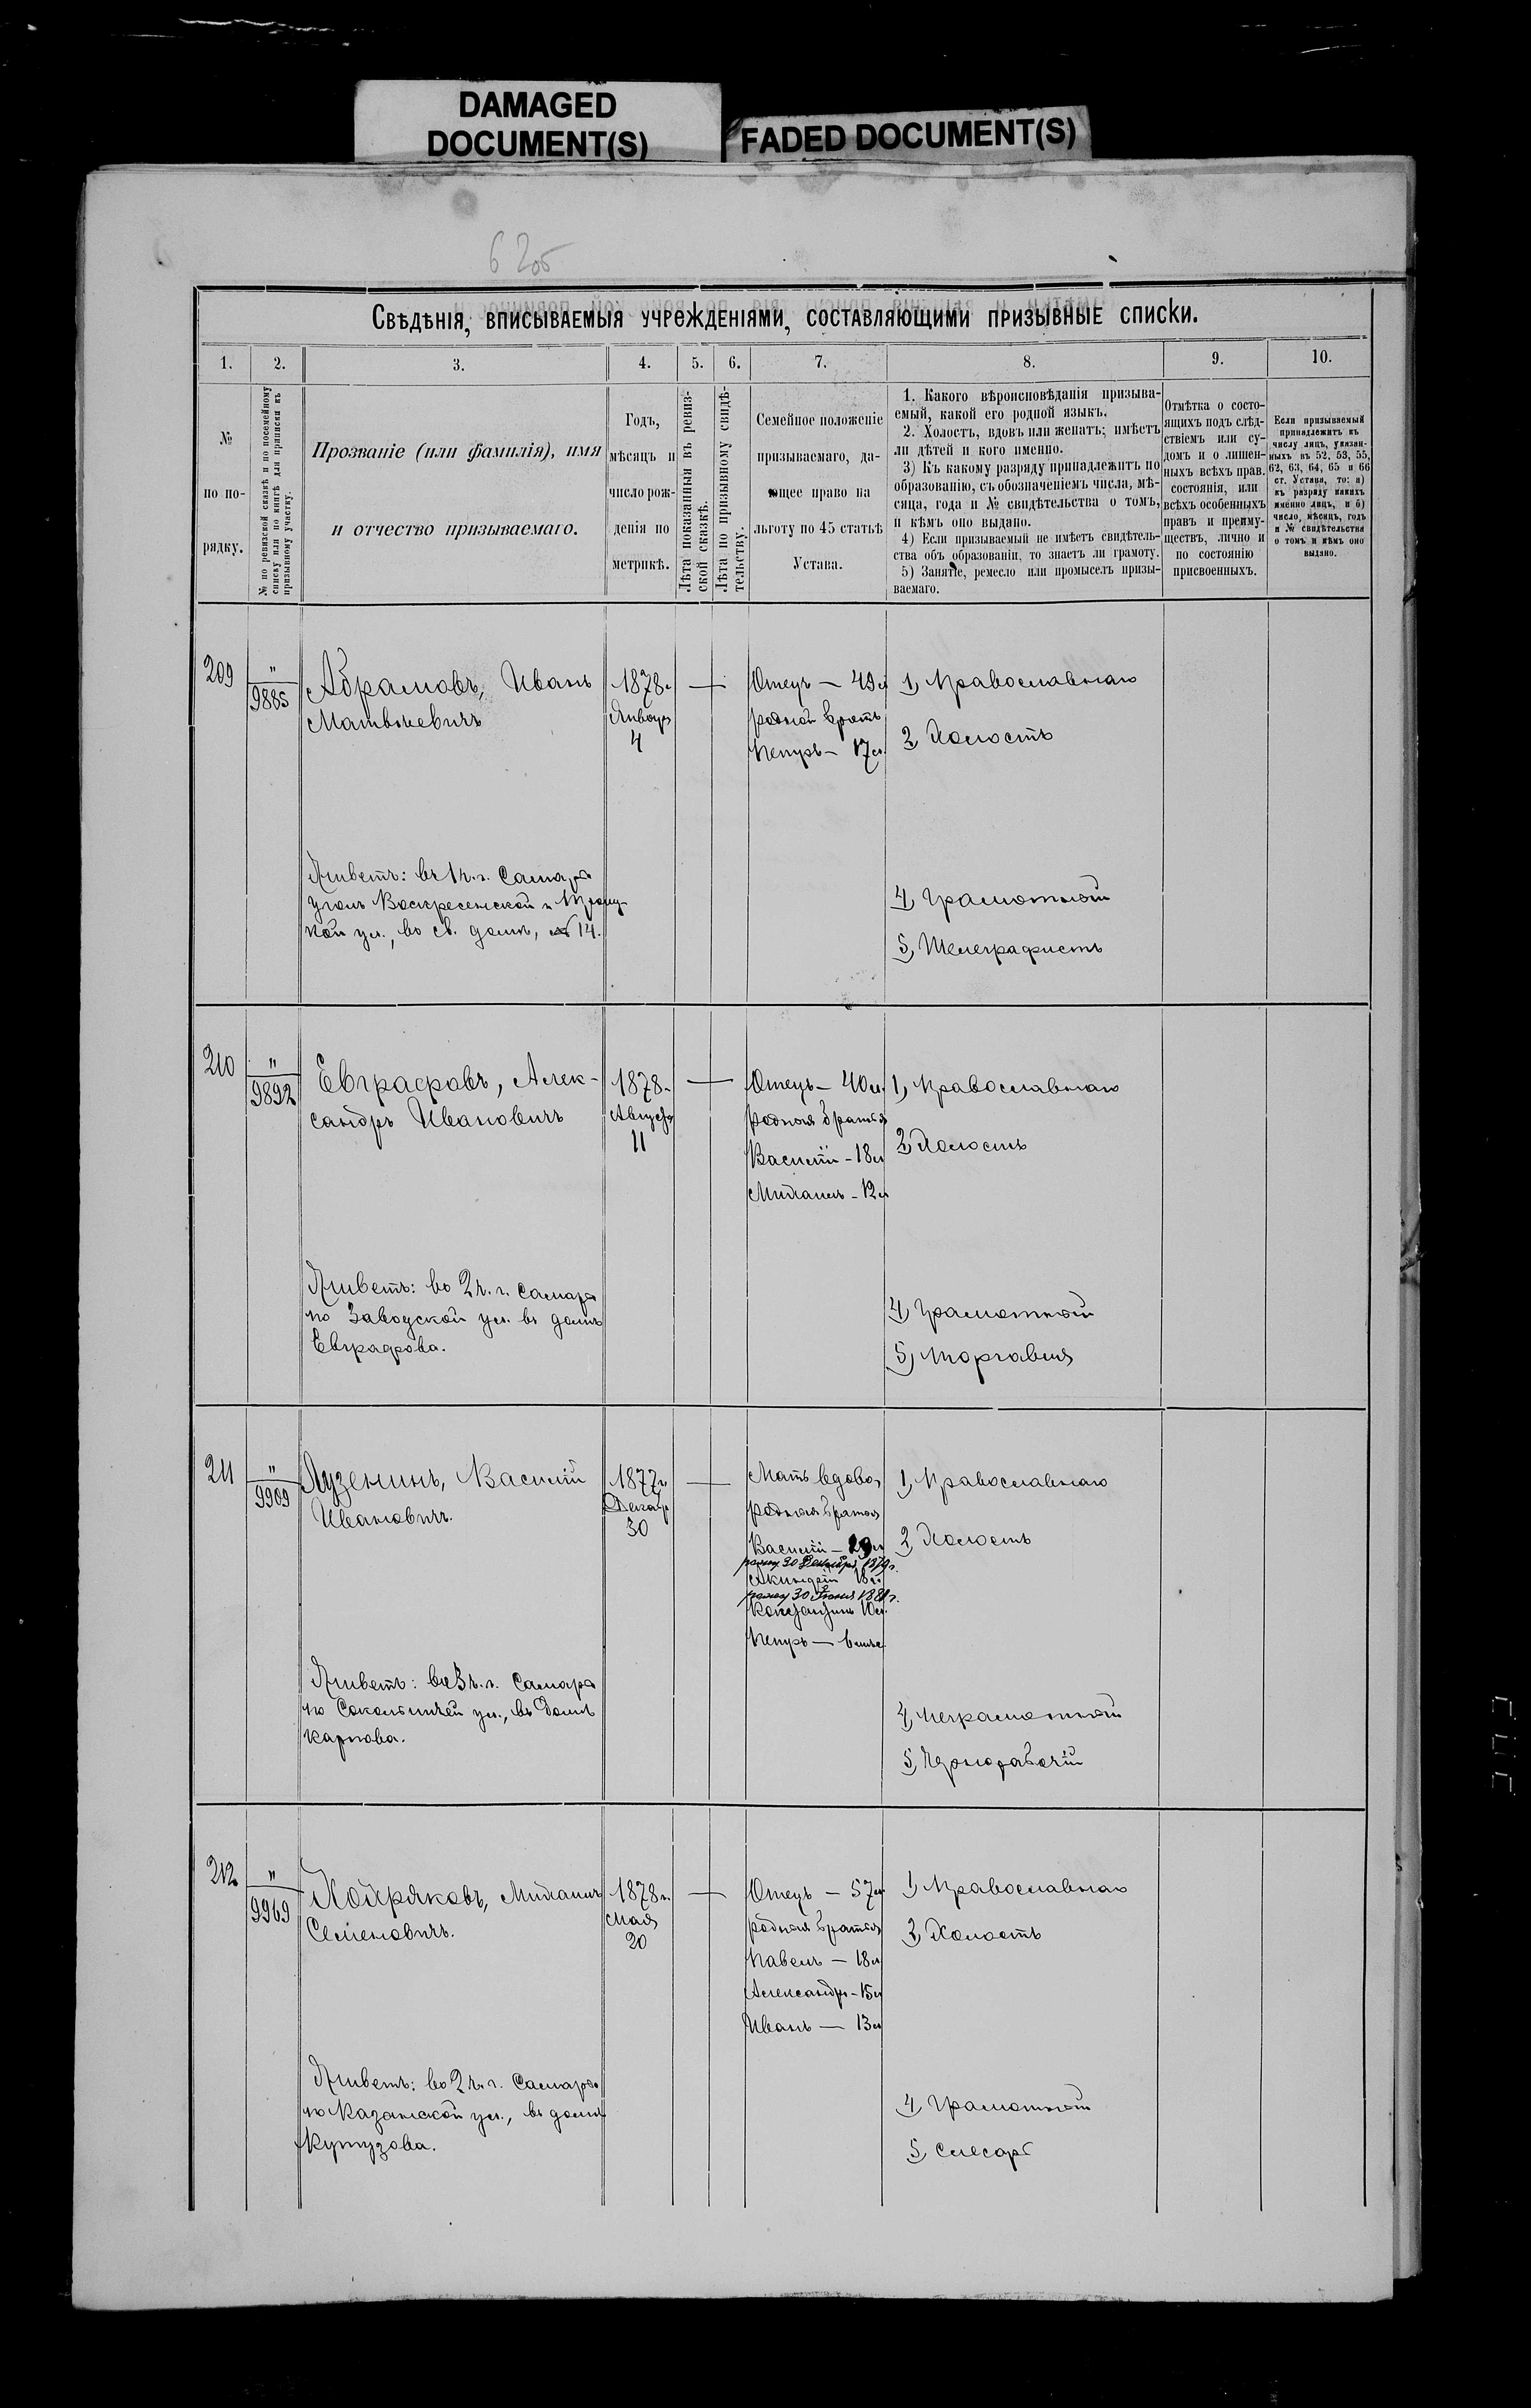 DAMAGED
DOCUMENT(S)
FADED DOCUMENT(S)
Свѣдѣнія, вписываемыя учрежденіями, составляющими призывные списки.
1.
2.
3.
4.
5.
6.
7.
8.
9.
10.
№
по по-
рядку.
№ по ревизской сказкѣ и по посемейному
списку или по книгѣ для приписки къ
призывному участку.
Прозваніе (или фамилія), имя
и отчество призываемаго.
Годъ,
мѣсяцъ и
число рож-
денія по
метрикѣ.
Лѣта показанныя въ ревиз-
ской сказкѣ.
Лѣта по призывному свидѣ-
тельству.
Семейное положеніе
призываемаго, да-
ющее право на
льготу по 45 статьѣ
Устава.
1. Какого вѣроисповѣданія призыва-
емый, какой его родной языкъ.
2. Холостъ, вдовъ или женатъ; имѣетъ
ли дѣтей и кого именно.
3) Къ какому разряду принадлежитъ по
образованію, съ обозначеніемъ числа, мѣ-
сяца, года и № свидѣтельства о томъ,
и кѣмъ оно выдано.
4) Если призываемый не имѣетъ свидѣтель-
ства объ образованіи, то знаетъ ли грамоту.
5) Занятіе, ремесло или промыселъ призы-
ваемаго.
Отмѣтка о состо-
ящихъ подъ слѣд-
ствіемъ или су-
домъ и о лишен-
ныхъ всѣхъ прав.
состоянія, или
всѣхъ особенныхъ
правъ и преиму-
ществъ, лично и
по состоянію
присвоенныхъ.
Если призываемый
принадлежитъ къ
числу лицъ, указан-
ныхъ въ 52, 53, 55,
62, 63, 64, 65 и 66
ст. Устава, то: а)
къ разряду какихъ
именно лицъ, и б)
число, мѣсяцъ, годъ
и № свидѣтельства
о томъ и кѣмъ оно
выдано.
209
"
9885
Абрамовъ, Иванъ
Матвѣевичъ
1878
Январь
4
Отецъ — 49 л
родной братъ
Петръ — 17 л
1, Православнаго
2, Холостъ
Живетъ: въ 1 ч. г. Самары
уголъ Воскресенской и
кой ул., во св. домѣ, № 14.
4, Грамотный
5, Телеграфистъ
210
"
9892
Евграфовъ, Алек-
сандръ Ивановичъ
1878
Августа
11
Отецъ — 40 л.
Родныя братья
Василій — 18 л
Михаилъ — 12 л
1, Православнаго
2, Холостъ
Живетъ: во 2 ч. г. Самары
по Заводской ул. въ домѣ
Евграфова.
4, Грамотный
5, Торговля
211
"
9909
Лузенинъ, Василій
Ивановичъ.
1877
Декабр
30
Мать вдова
родныя братья
Василій —
30 Декабря 1879 г.
18 л
30 Іюня 1881 г.
Константинъ 10 л.
Петръ —
1, Православнаго
2, Холостъ
Живетъ: въ 3 ч. г. Самары
по Сокольничей ул., въ домѣ
Карпова.
4, Неграмотный
5, Чернорабочій
212
"
9969
Михаилъ
Семеновичъ.
1878
Мая
20
Отецъ — 57 л
родныя братья
Павелъ — 18 л
Александръ — 15 л
Иванъ — 13 л
1, Православнаго
2, Холостъ
Живетъ: во 2 ч. г. Самары
по Казанской ул., въ домѣ
Кутузова.
4, Грамотный
5, Слесарь